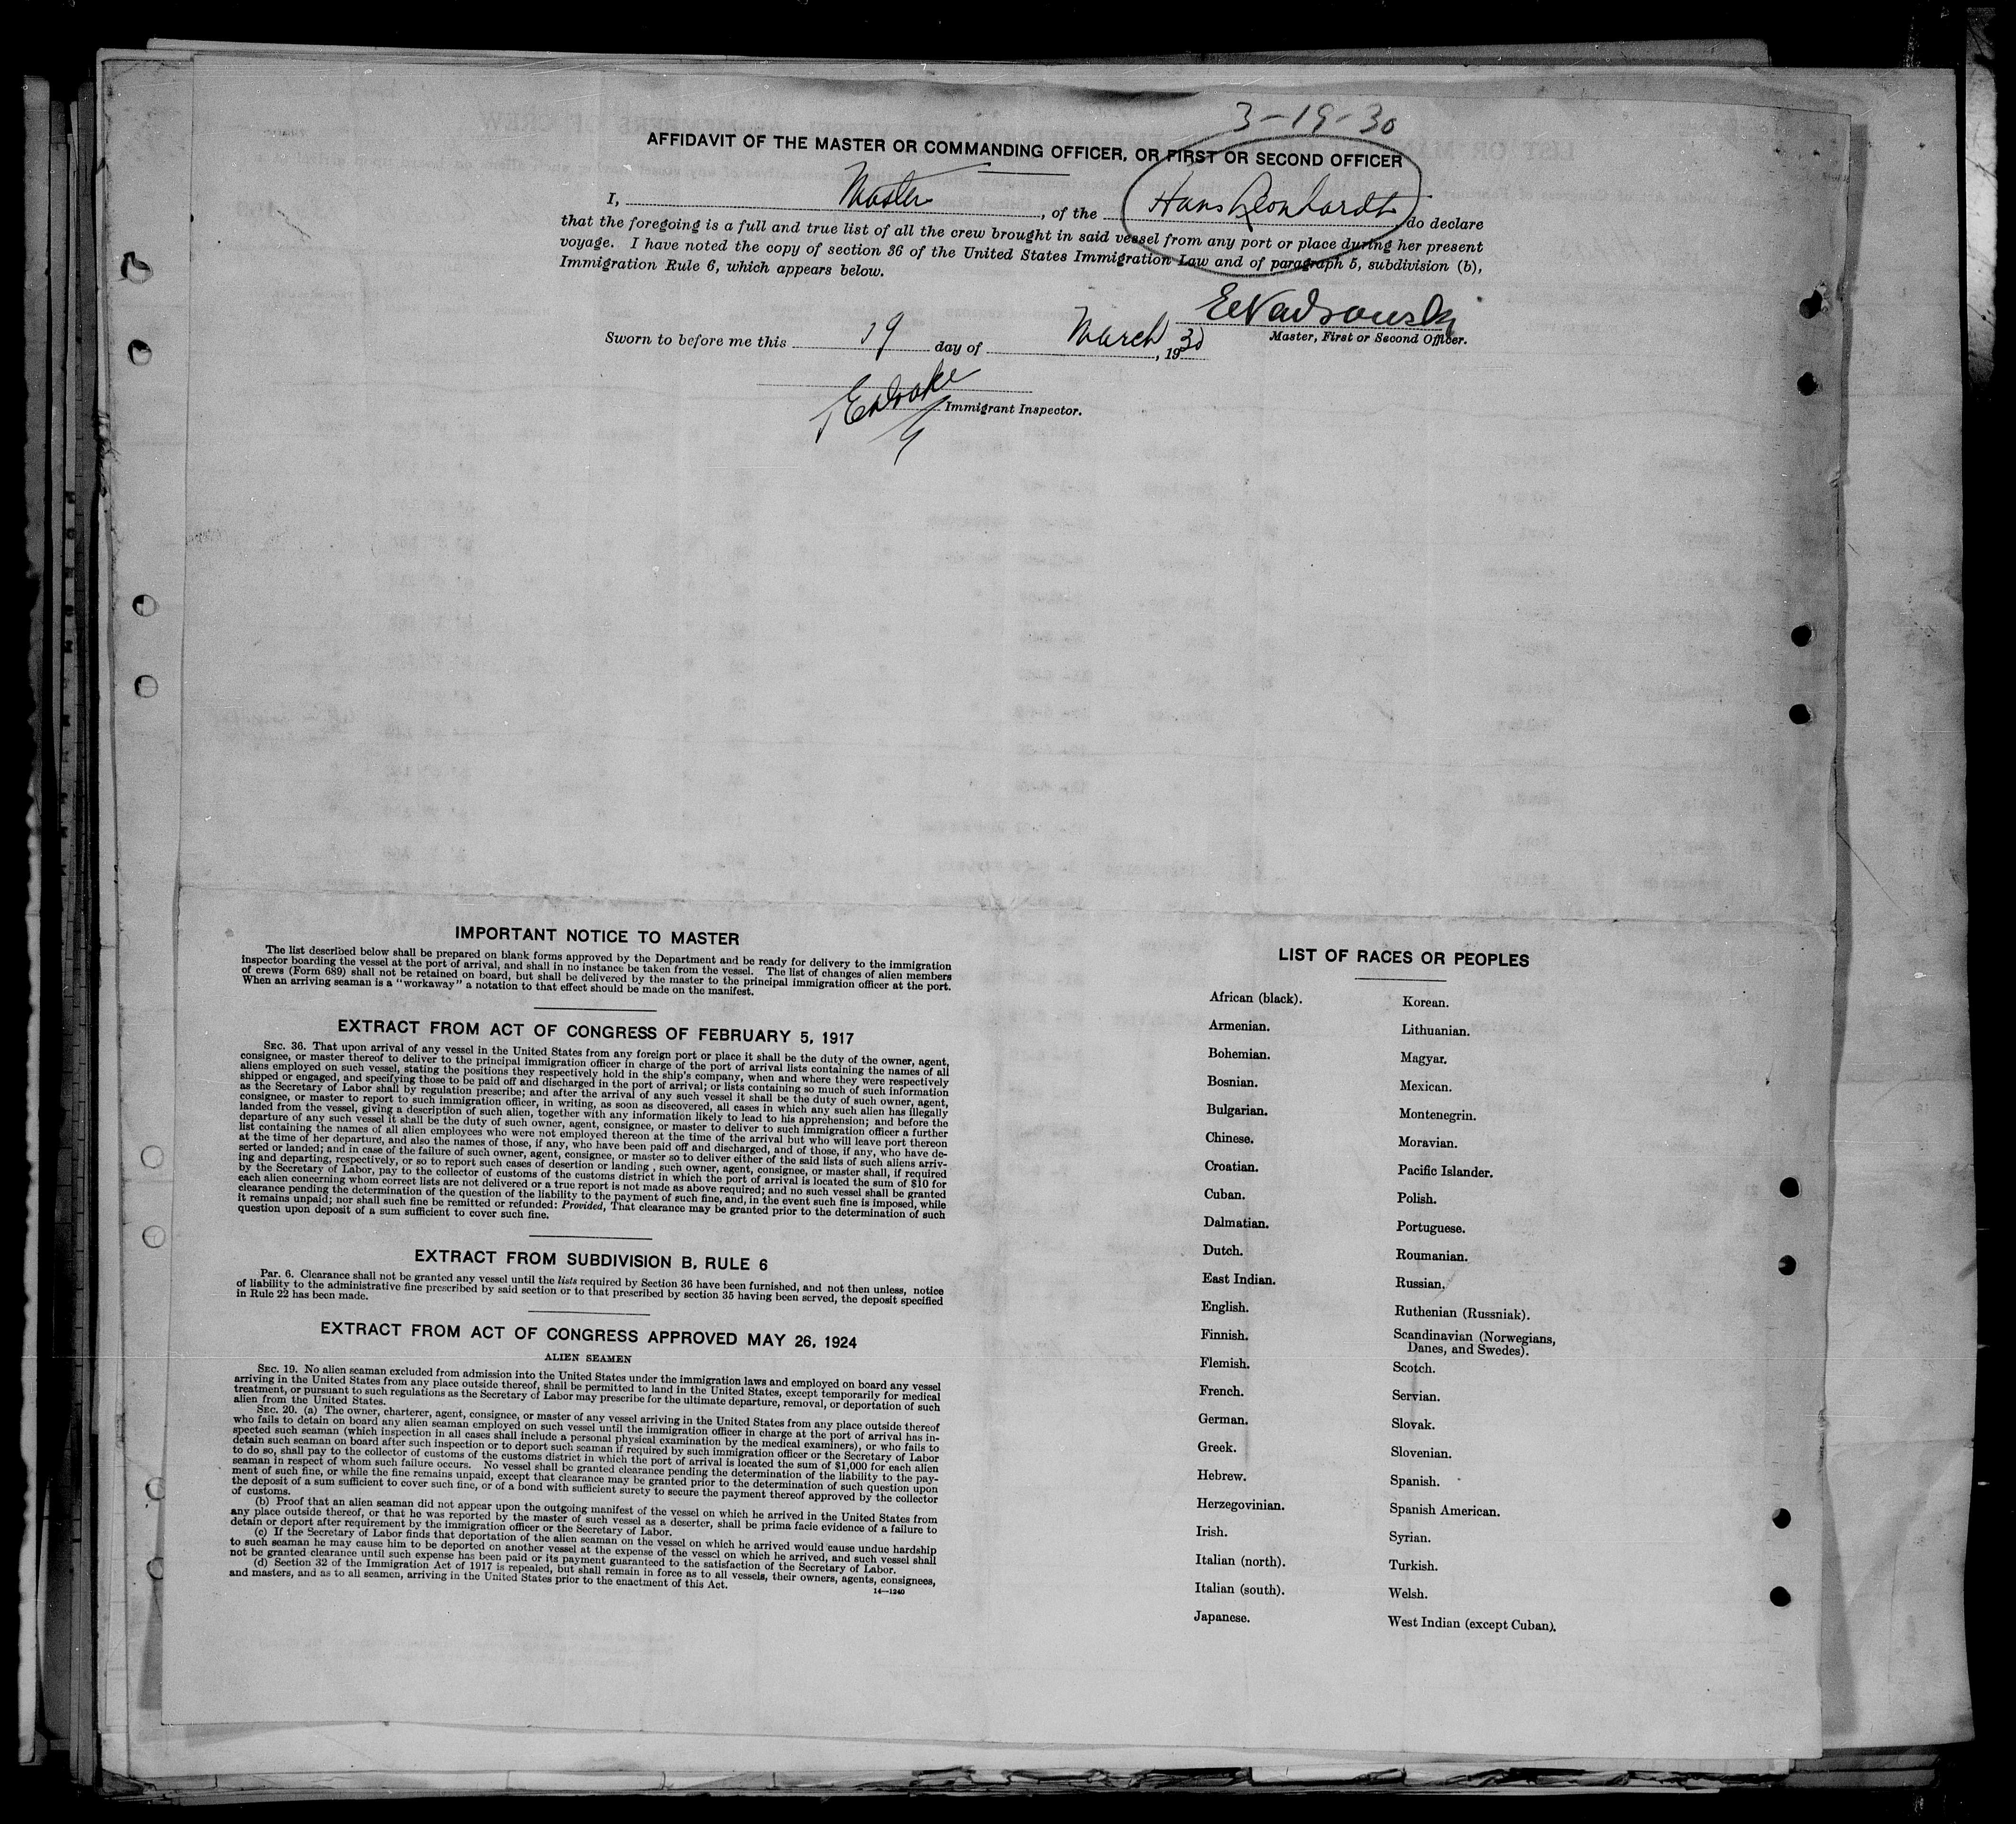 3-19-30
AFFIDAVIT OF THE MASTER OR COMMANDING OFFICER, OR FIRST OR SECOND OFFICER
I, Master, of the Hans Leonhardt do declare
that the foregoing is a full and true list of all the crew brought in said vessel from any port or place during her present
voyage. I have noted the copy of section 36 of the United States Immigration Law and of paragraph 5, subdivision (b),
Immigration Rule 6, which appears below.
Master, First or Second Officer.
Sworn to before me this 19 day of March, 1930
Immigrant Inspector.
IMPORTANT NOTICE TO MASTER
The list described below shall be prepared on blank forms approved by the Department and be ready for delivery to the immigration
inspector boarding the vessel at the port of arrival, and shall in no instance be taken from the vessel. The list of changes of alien members
of crews (Form 689) shall not be retained on board, but shall be delivered by the master to the principal immigration officer at the port.
When an arriving seaman is a "workaway" a notation to that effect should be made on the manifest.
EXTRACT FROM ACT OF CONGRESS OF FEBRUARY 5, 1917
SEC. 36. That upon arrival of any vessel in the United States from any foreign port or place it shall be the duty of the owner, agent,
consignee, or master thereof to deliver to the principal immigration officer in charge of the port of arrival lists containing the names of all
aliens employed on such vessel, stating the positions they respectively hold in the ship's company, when and where they were respectively
shipped or engaged, and specifying those to be paid off and discharged in the port of arrival; or lists containing so much of such information
as the Secretary of Labor shall by regulation prescribe; and after the arrival of any such vessel it shall be the duty of such owner, agent,
consignee, or master to report to such immigration officer, in writing, as soon as discovered, all cases in which any such alien has illegally
landed from the vessel, giving a description of such alien, together with any information likely to lead to his apprehension; and before the
departure of any such vessel it shall be the duty of such owner, agent, consignee, or master to deliver to such immigration officer a further
list containing the names of all alien employees who were not employed thereon at the time of the arrival but who will leave port thereon
at the time of her departure, and also the names of those, if any, who have been paid off and discharged, and of those, if any, who have de-
serted or landed; and in case of the failure of such owner, agent, consignee, or master so to deliver either of the said lists of such aliens arriv-
ing and departing, respectively, or so to report such cases of desertion or landing , such owner, agent, consignee, or master shall, if required
by the Secretary of Labor, pay to the collector of customs of the customs district in which the port of arrival is located the sum of $10 for
each alien concerning whom correct lists are not delivered or a true report is not made as above required; and no such vessel shall be granted
clearance pending the determination of the question of the liability to the payment of such fine, and, in the event such fine is imposed, while
it remains unpaid; nor shall such fine be remitted or refunded: Provided, That clearance may be granted prior to the determination of such
question upon deposit of a sum sufficient to cover such fine.
EXTRACT FROM SUBDIVISION B, RULE 6
Par. 6. Clearance shall not be granted any vessel until the lists required by Section 36 have been furnished, and not then unless, notice
of liability to the administrative fine prescribed by said section or to that prescribed by section 35 having been served, the deposit specified
in Rule 22 has been made.
EXTRACT FROM ACT OF CONGRESS APPROVED MAY 26, 1924
ALIEN SEAMEN
SEC. 19. No alien seaman excluded from admission into the United States under the immigration laws and employed on board any vessel
arriving in the United States from any place outside thereof, shall be permitted to land in the United States, except temporarily for medical
treatment, or pursuant to such regulations as the Secretary of Labor may prescribe for the ultimate departure, removal, or deportation of such
alien from the United States.
SEC. 20. (a) The owner, charterer, agent, consignee, or master of any vessel arriving in the United States from any place outside thereof
who fails to detain on board any alien seaman employed on such vessel until the immigration officer in charge at the port of arrival has in-
spected such seaman (which inspection in all cases shall include a personal physical examination by the medical examiners), or who fails to
detain such seaman on board after such inspection or to deport such seaman if required by such immigration officer or the Secretary of Labor
to do so, shall pay to the collector of customs of the customs district in which the port of arrival is located the sum of $1,000 for each alien
seaman in respect of whom such failure occurs. No vessel shall be granted clearance pending the determination of the liability to the pay-
ment of such fine, or while the fine remains unpaid, except that clearance may be granted prior to the determination of such question upon
the deposit of a sum sufficient to cover such fine, or of a bond with sufficient surety to secure the payment thereof approved by the collector
of customs.
(b) Proof that an alien seaman did not appear upon the outgoing manifest of the vessel on which he arrived in the United States from
any place outside thereof, or that he was reported by the master of such vessel as a deserter, shall be prima facie evidence of a failure to
detain or deport after requirement by the immigration officer or the Secretary of Labor.
(c) If the Secretary of Labor finds that deportation of the alien seaman on the vessel on which he arrived would cause undue hardship
to such seaman he may cause him to be deported on another vessel at the expense of the vessel on which he arrived, and such vessel shall
not be granted clearance until such expense has been paid or its payment guaranteed to the satisfaction of the Secretary of Labor.
(d) Section 32 of the Immigration Act of 1917 is repealed, but shall remain in force as to all vessels, their owners, agents, consignees,
and masters, and as to all seamen, arriving in the United States prior to the enactment of this Act.
14—1240
LIST OF RACES OR PEOPLES
African (black).
Armenian.
Bohemian.
Bosnian.
Bulgarian.
Chinese.
Croatian.
Cuban.
Dalmatian.
Dutch.
East Indian.
English.
Finnish.
Flemish.
French.
German.
Greek.
Hebrew.
Herzegovinian.
Irish.
Italian (north).
Italian (south).
Japanese.
Korean.
Lithuanian.
Magyar.
Mexican.
Montenegrin.
Moravian.
Pacific Islander.
Polish.
Portuguese.
Roumanian.
Russian.
Ruthenian (Russniak).
Scandinavian (Norwegians,
Danes, and Swedes).
Scotch.
Servian.
Slovak.
Slovenian.
Spanish.
Spanish American.
Syrian.
Turkish.
Welsh.
West Indian (except Cuban).